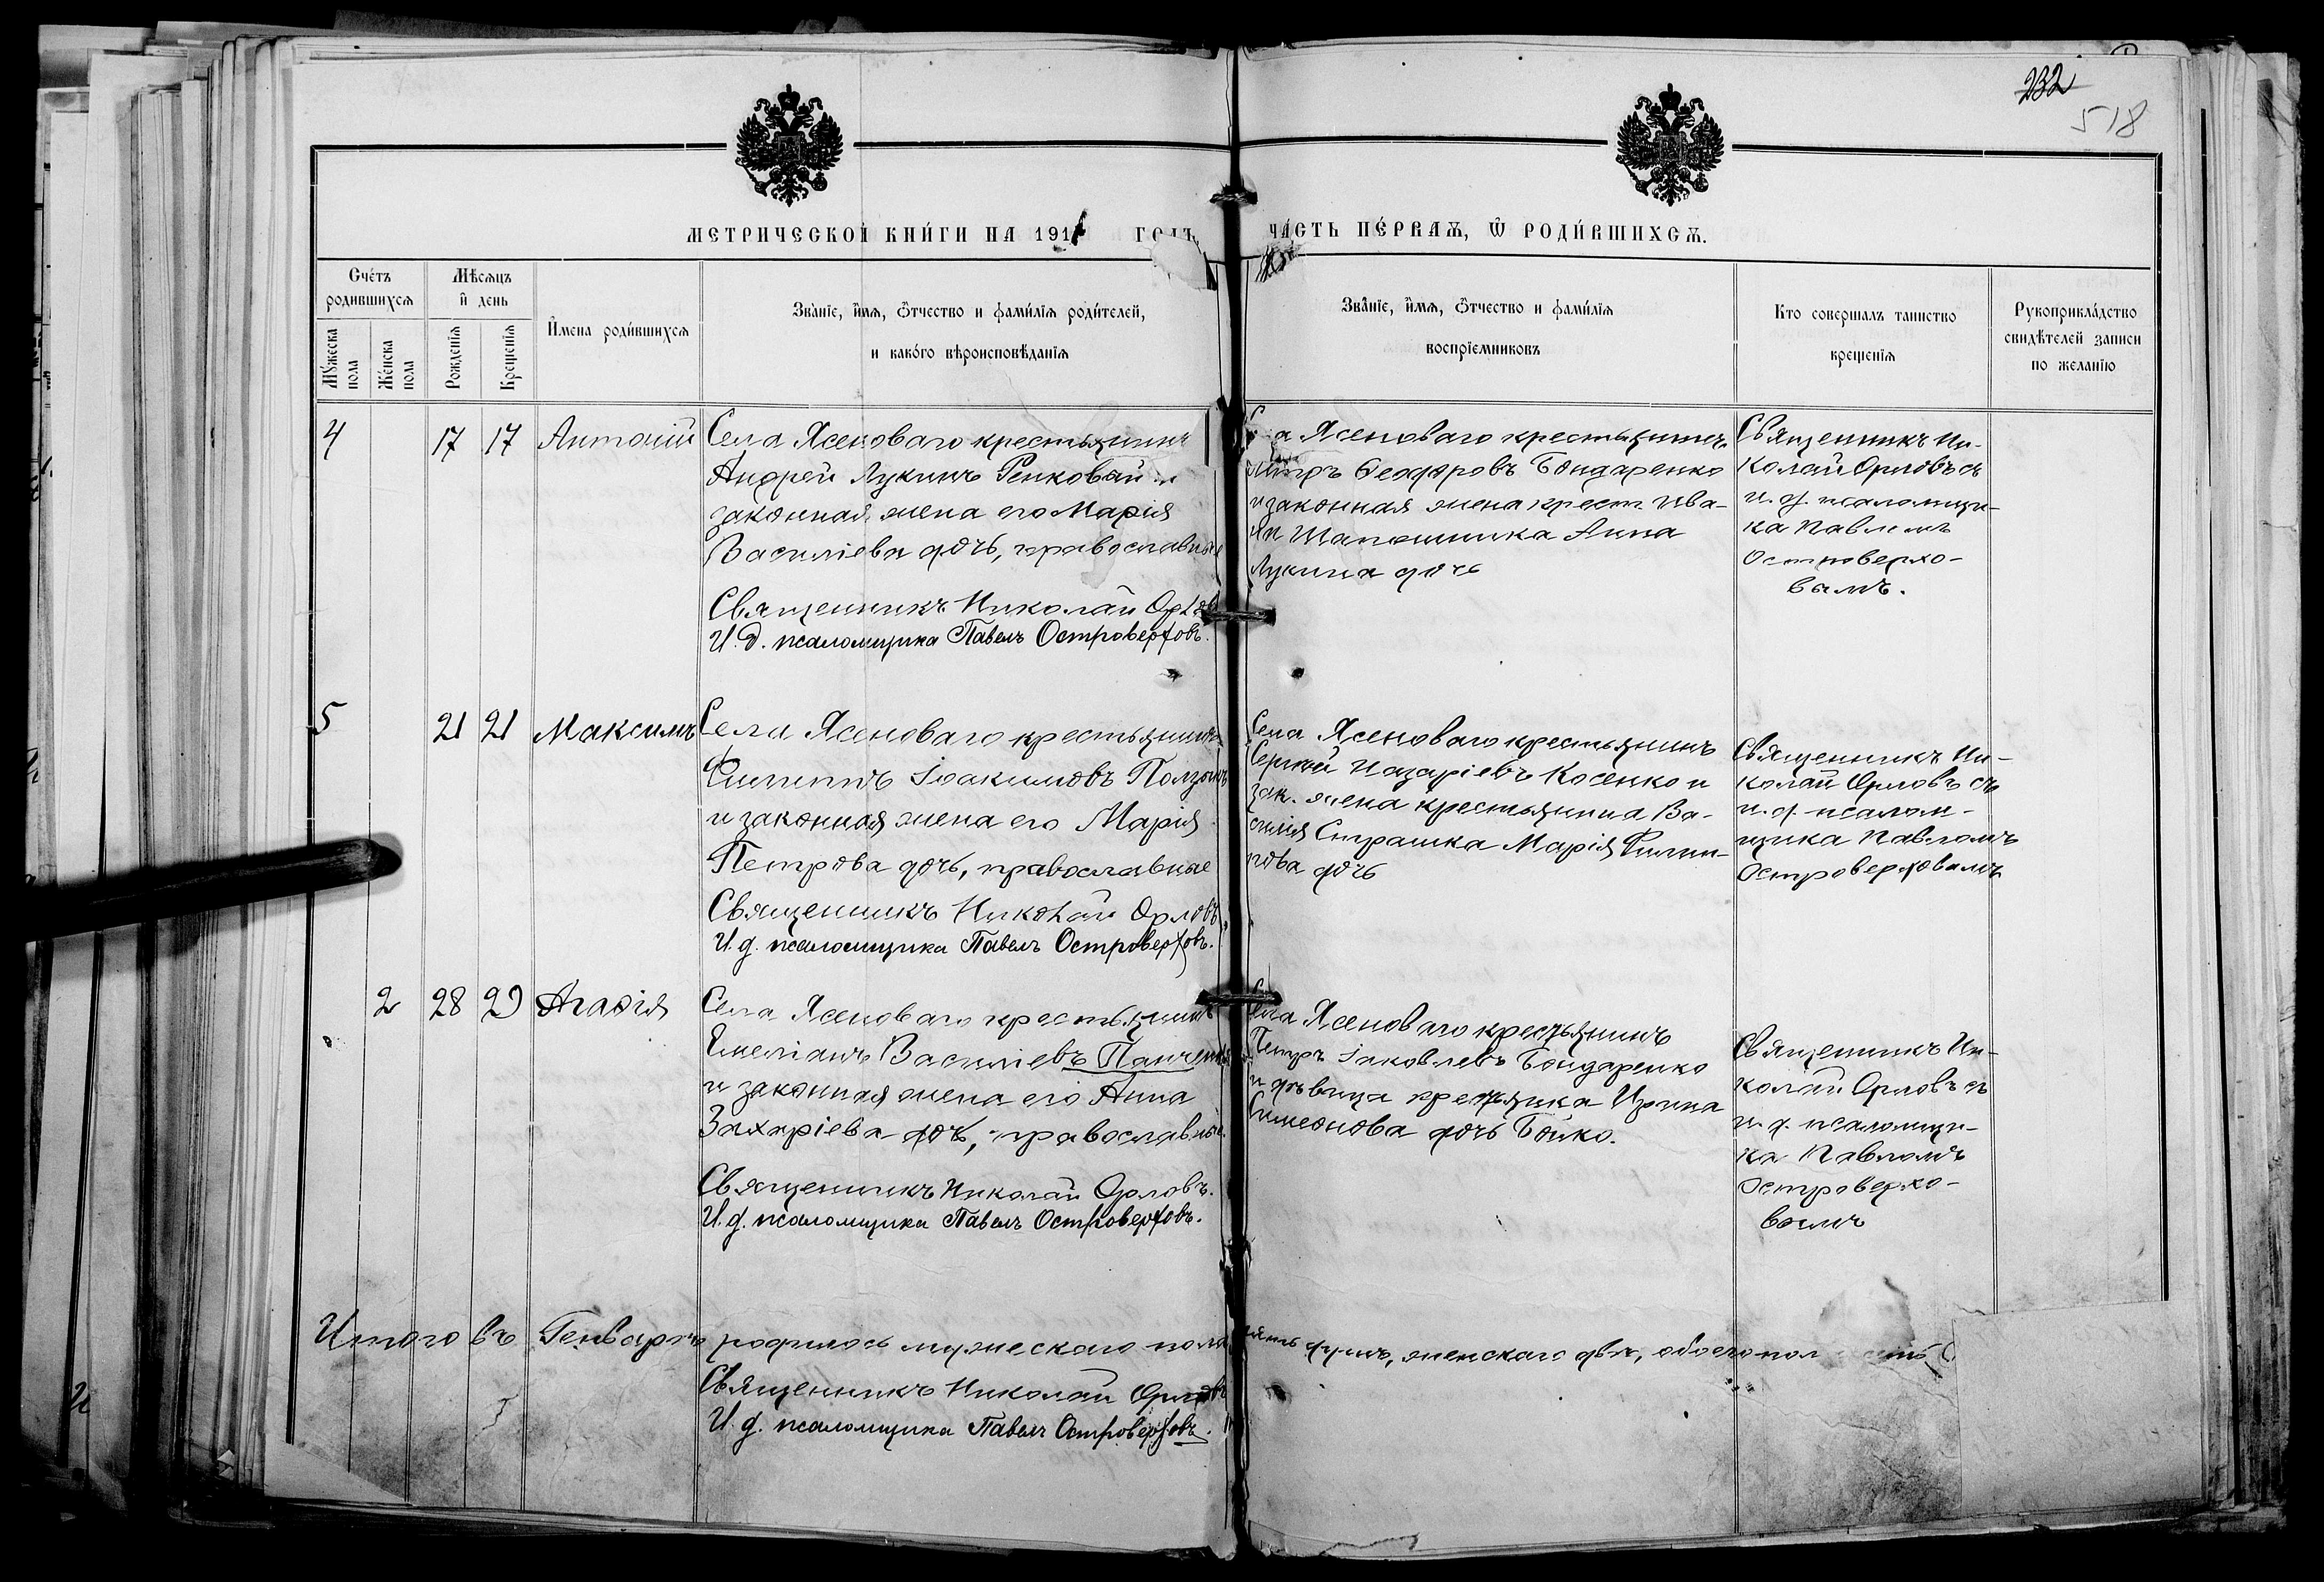 232
518
МЕТРИЧЕСКОЙ КНИ́ГИ НА 191 ГОДЪ
ЧА́СТЬ ПЕ́РВАѦ, Ѡ РОДИ́ВШИХСѦ.
Счетъ родившихсѧ
Мꙋжеска пола
Же́нска пола
Мѣсѧцъ и҆ день
Рожденїѧ
Крещенїѧ
И҆мена роди́вшихсѧ
Зва́нїе, и҆мѧ, ѻ҆тчество и фами́лїѧ роди́телей,
и како́го вѣроисповѣ́данїѧ
Зва́нїе, и҆мѧ, ѻ҆тчество и фами́лїѧ
воспрїемниковъ
Кто совершалъ таинство
крещенїѧ
Рукоприкла́дство
свидѣ́телей записи
по желанїю
4 17 17 Антоній
Села Ясеноваго крестьянинъ
Андрей Лукинъ Ренковой и
законная жена его Марія
Василіева дочь, православные
Священникъ Николай Орловъ
И. д. псаломщика Павелъ Островерховъ.
Ясеноваго крестьянинъ
Феодоровъ Бондаренко
и законная жена крест. Ива-
на Шапошника Анна
Лукина дочь
Священникъ Ни-
колай Орловъ съ
и. д. псаломщи-
ка Павломъ
Островерхо-
вымъ.
5 21 21 Максимъ
Села Ясеноваго крестьянинъ
Филиппъ Іоакимовъ
и законная жена его Марія
Петрова дочь, православные
Священникъ Николай Орловъ
И. д. псаломщика Павелъ Островерховъ.
Села Ясеноваго крестьянинъ
Сергій Назаріевъ Косенко и
зак. жена крестьянина Ва-
силія Страшка Марія Филип-
пова дочь
Священникъ Ни-
колай Орловъ съ
и. д. псалом-
щика Павломъ
Островерховымъ
2 28 29 Агафія
Села Ясеноваго крестьянинъ
Емеліанъ Василіевъ Панченко
и законная жена его Анна
Захаріева дочь, православные.
Священникъ Николай Орловъ.
И. д. псаломщика Павелъ Островерховъ.
Села Ясеноваго крестьянинъ
Петръ Іаковлевъ Бондаренко
и дѣвица крестьянка Ирина
Симеонова дочь Бойко.
Священникъ Ни-
колай Орловъ съ
и. д. псаломщи-
ка Павломъ
Островерхо-
вымъ
Итого въ Генварѣ родилось мужескаго пола пять душъ, женскаго двѣ, обоего пол
Священникъ Николай Орловъ
И. д. псаломщика Павелъ Островерховъ.